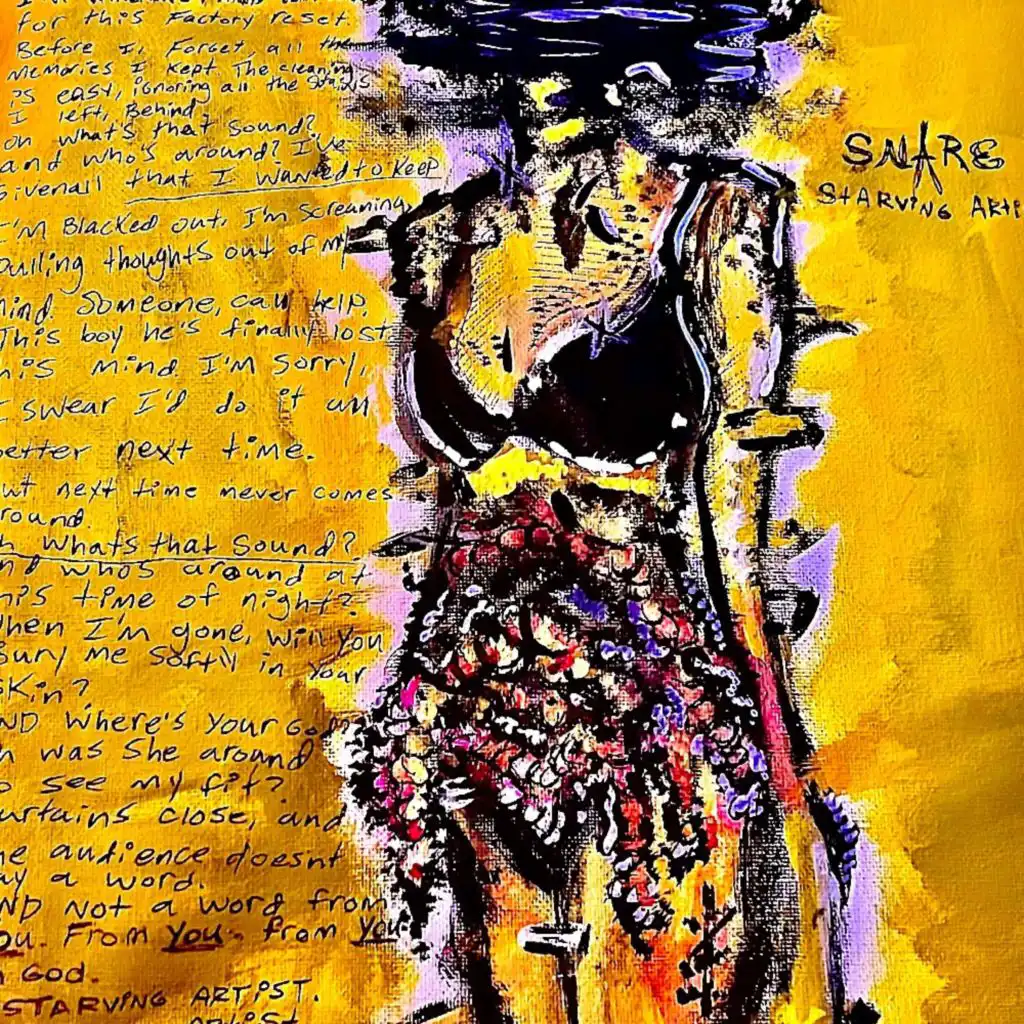 for this Factory reset.
Before I, Forget, all the
Memories I Kept. The cleaning
is easy, ignoring all the stains
I left, Behind,
oh what's that sound?
and who's around? I've
Givenall that I wanted to keep
I'm Blacked out. I'm Screaming,
pulling thoughts out of my
mind. Someone, can help,
This boy he's finally lost
his mind. I'm Sorry,
I swear I'd do it all
better next time.
But next time never comes
around.
oh whats that sound?
and whos around at
this time of night?
When I'm gone, will you
Bury me Softly in your
Skin?
AND Where's your God
oh was she around
to see my fit?
Curtains close, and
the audience doesnt
say a word.
AND Not a word from
You. From You, from You
oh God.
STARVING ARTIST.
Artist
SNARE
STARVING